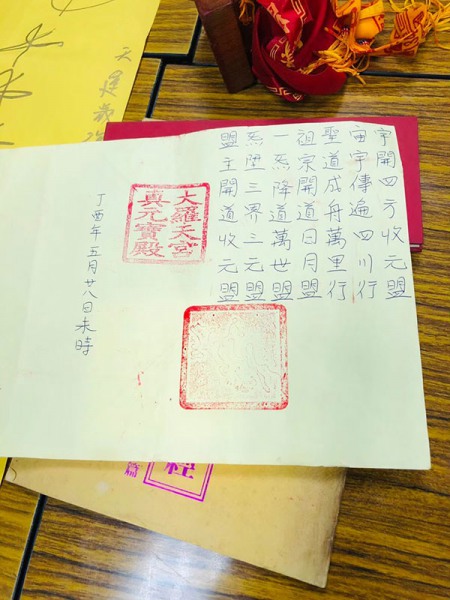 宇開四方收元盟
宙宇傳遍四川行
聖道成舟萬里行
祖宗開道日月盟
一炁降道萬世盟
炁堕三界三元盟
盟主開道收元盟
大羅天宮
真元寶殿
丁酉年五月廿八日未時
天運歲次
經
篇